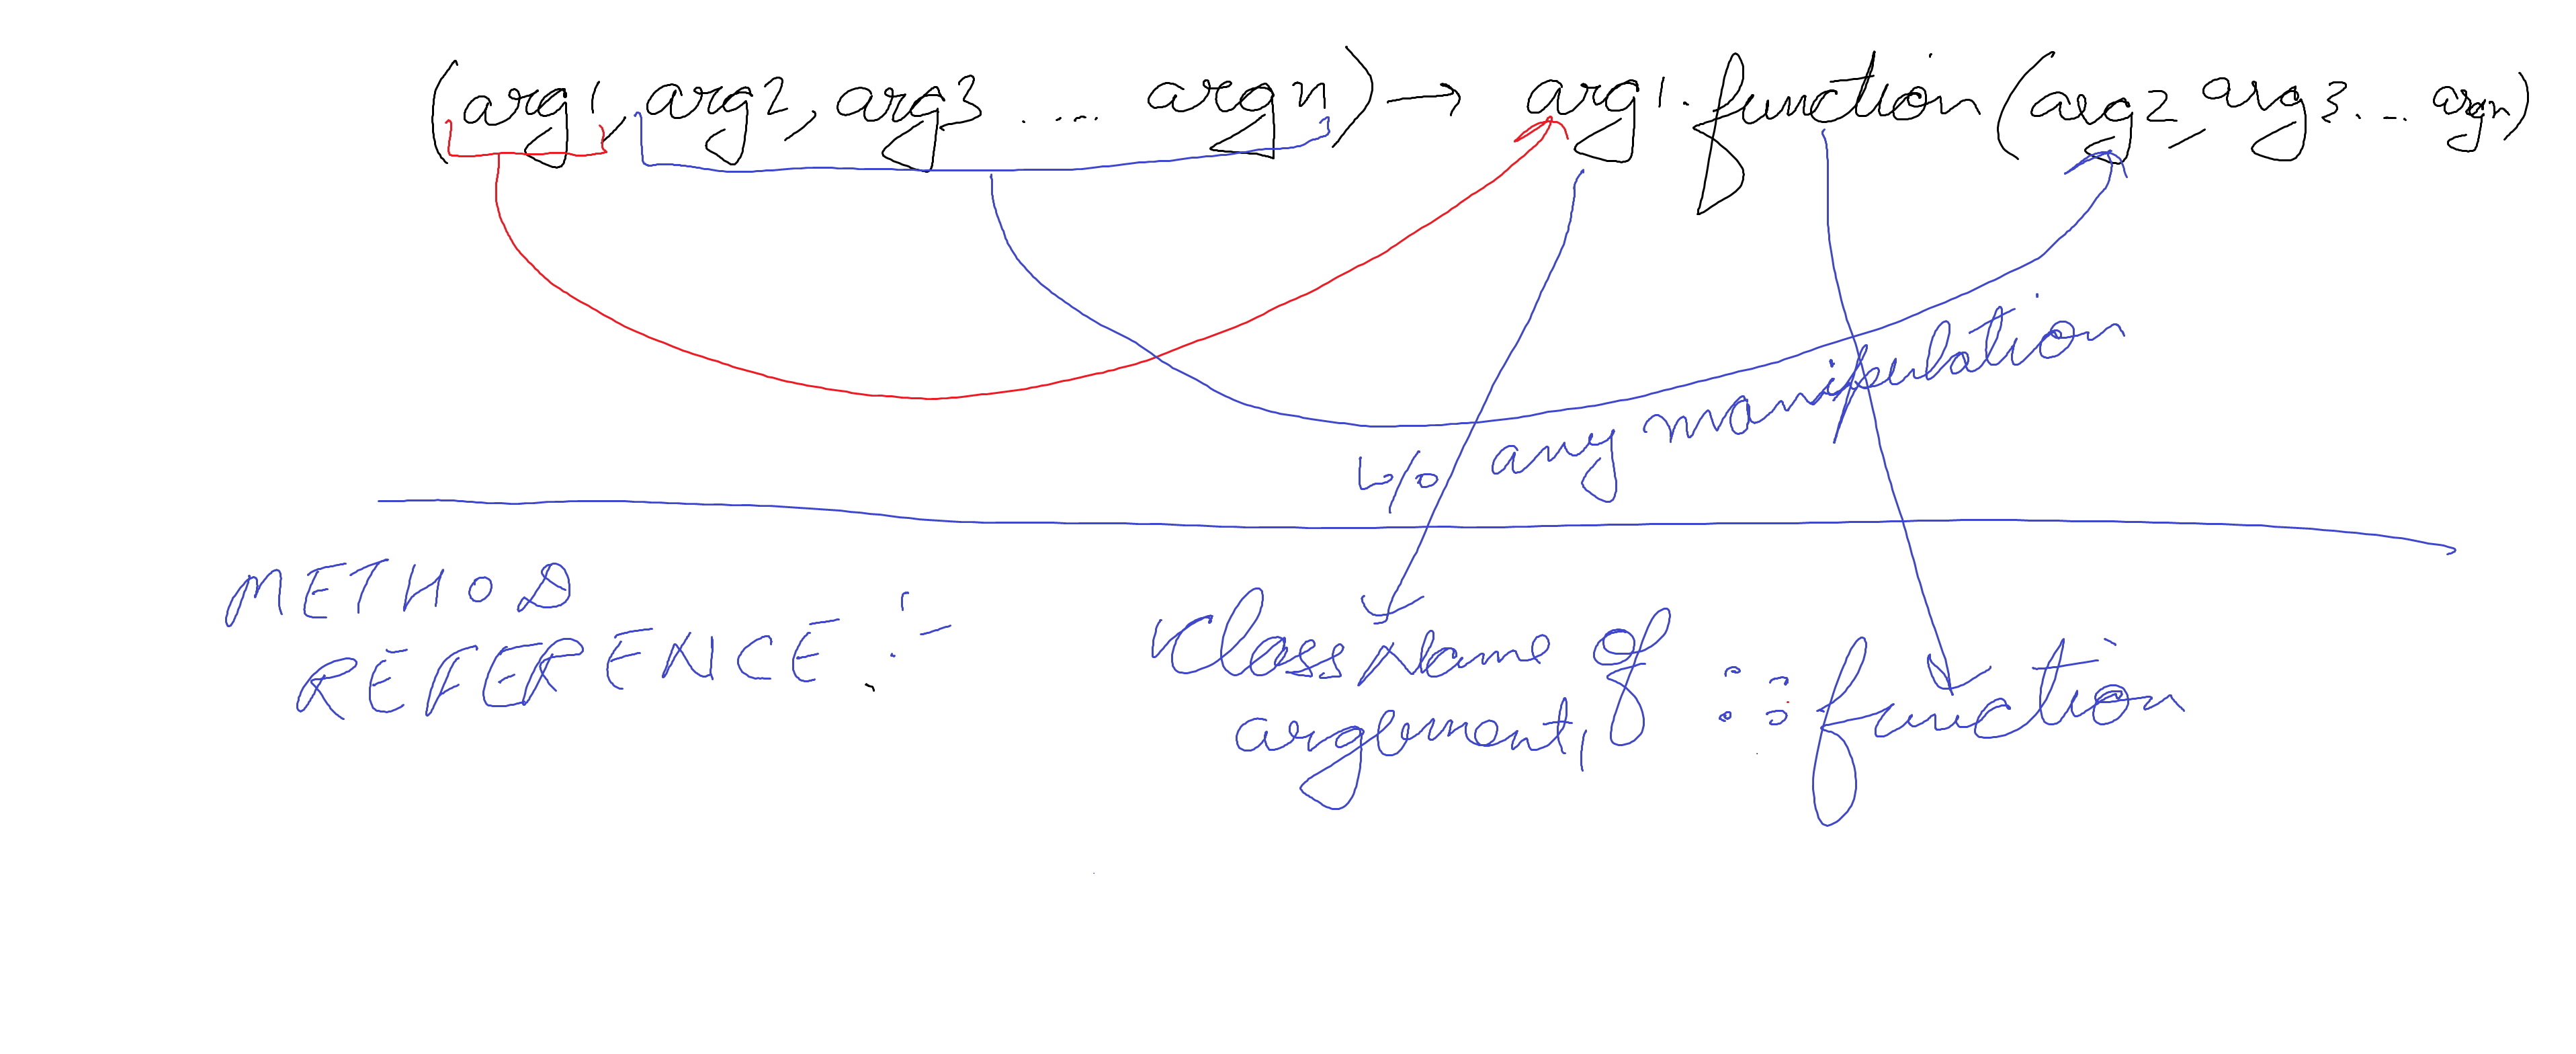 (arg1, arg2, arg3 .... argn) → arg1.function(arg2, arg3... argn)
w/o any manipulation
METHOD
REFERENCE :-
ClassName of :: function
arguement1